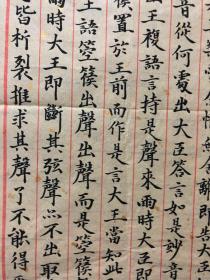 即告大
音從何處出大臣答言如是妙音
王複語言持是聲來爾時大臣即
篌置於王前而作是言大王當知此
王語箜篌出聲出聲而是箜篌
爾時大王即斷其弦聲亦不出取
皆析裂推求其聲了不能得